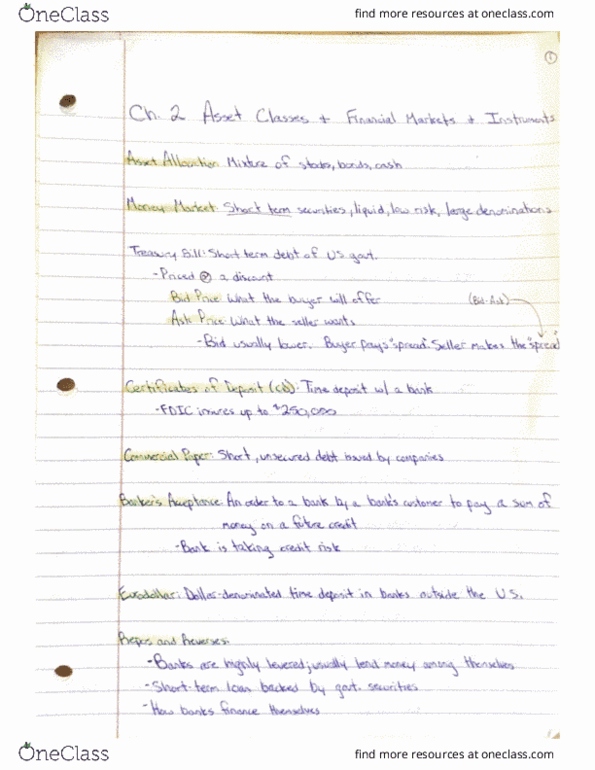 OneClass
find more resources at oneclass.com
1
Ch. 2 Asset Classes + Financial Markets + Instruments
Asset Allocation: Mixture of stocks, bonds, cash
Money Market: Short term securities, liquid, low risk, large denominations
Treasury Bill: Short term debt of US govt.
- Priced @ a discount
Bid Price: What the buyer will offer
(Bid-Ask)
Ask Price: What the seller wants
- Bid usually lower. Buyer pays "spread". Seller makes the "spread"
Certificates of Deposit (cb): Time deposit w/ a bank
- FDIC insures up to $250,000
Commercial Paper: Short, unsecured debt issued by companies
Banker's Acceptance: An order to a bank by a bank's customer to pay a sum of
money on a future credit
- Bank is taking credit risk
Eurodollar: Dollar-denominated time deposit in banks outside the U.S.
Repos and Reverses:
- Banks are highly levered; usually lend money among themselves
- Short-term loan backed by govt. securities
- How banks finance themselves
OneClass
find more resources at oneclass.com